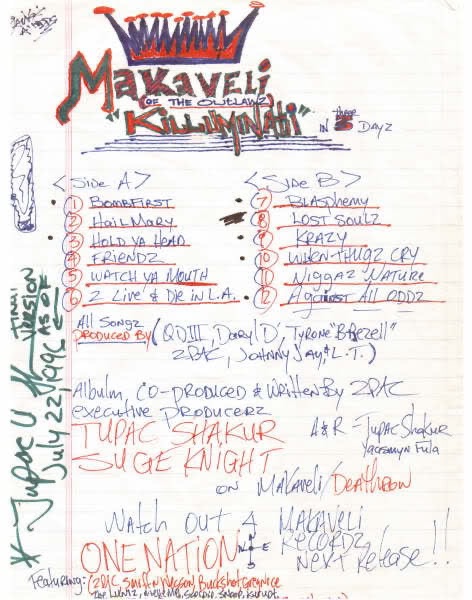 MAKAVELI
(OF THE OUTLAWZ)
"KILLUMINATI"
IN three 3 DAYZ
<SIDE A>
1 BOMBFIRST
2 HAIL MARY
3 HOLD YA HEAD
4 FRIENDZ
5 WATCH YA MOUTH
6 2 LIVE & DIE IN L.A.
<SIDE B>
7 BLASPHEMY
8 LOST SOULZ
9 KRAZY
10 WHEN THUGZ CRY
11 NIGGAZ NATURE
12 AGAINST ALL ODDZ
All Songz
PRODUCED BY (QDIII, Daryl D, TYRONE
2PAC, JOHNNY JAY & L.T.)
Albulm, CO-PRODUCED & WRITTEN BY 2PAC
EXECUTIVE PRODUCERZ
TUPAC SHAKUR
SUGE KNIGHT
A&R - TUPAC SHAKUR
Yaasmyn Fula
ON MAKAVELI/DEATHROW
WATCH OUT 4 MAKAVELI
RECORDZ
NEXT RELEASE!!
ONE NATION
N E
Featuring: 2PAC SMIF N WESSON, BUCKSHOT, GREG NICE
SNOOP, KURUPT
FINAL VERSION
AS OF
July 22, 1996